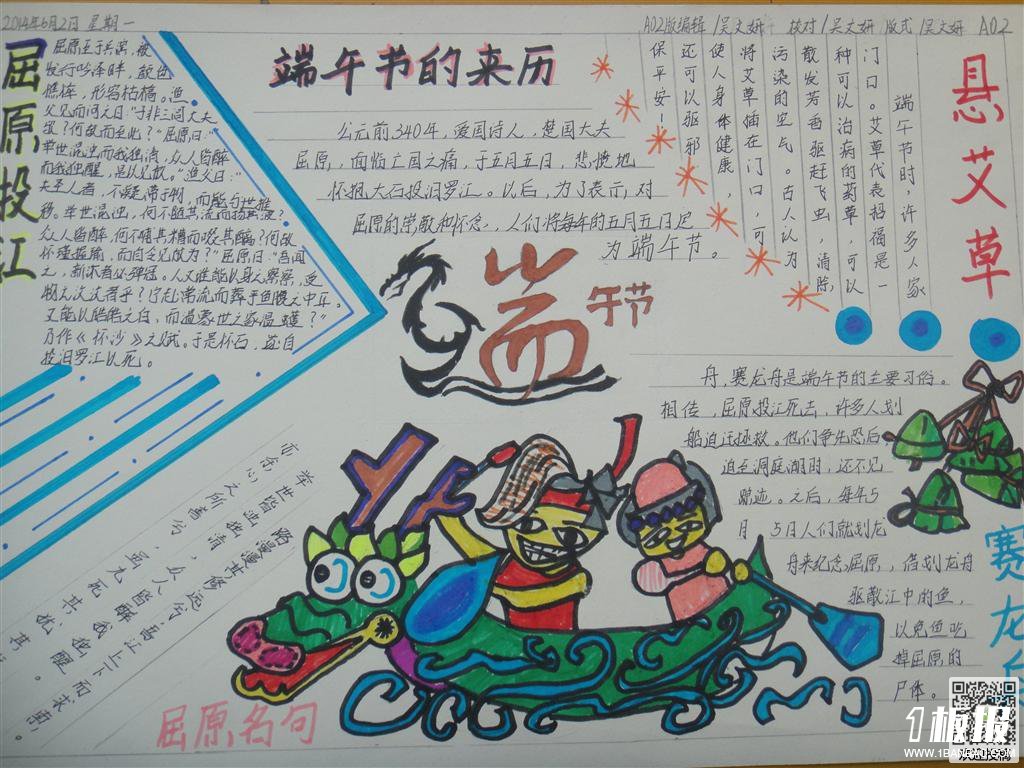 2014年6月2日 星期一
A02版编辑/吴文妍 校对/吴文妍 版式/吴文妍 A02
屈原投江
屈原至于江滨,被
发行吟泽畔,颜色
憔悴,形容枯槁。渔
父见而问之曰:"子非三闾大夫
欤?何故而至此?"屈原曰:"
举世混浊而我独清,众人皆醉
而我独醒,是以见放。"渔父曰:"
夫圣人者,不凝滞于物,而能与世推
移。举世混浊,何不随其流而扬其波?
众人皆醉,何不啜其糟而啜其醨?何故
怀瑾握瑜,而自令见放为?"屈原曰:"吾闻
之,新沐者必弹冠。人又谁能以身之察察,受
物之汶汶者乎?宁赴常流而葬乎鱼腹之中耳。
又能以皓皓之白,而蒙世之温蠖?"
乃作《怀沙》之赋。于是怀石,遂自
投汨罗江以死。
端午节的来历
公元前340年,爱国诗人,楚国大夫
屈原,面临亡国之痛,于五月五日,悲愤地
怀抱大石投汨罗江。以后,为了表示,对
屈原的崇敬和怀念,,人们将每年的五月五日定
为端午节。
悬艾草
端午节时,许多人家
门口。艾草代表招福是一
种可以治病的药草,可以
散发芳香驱赶飞虫,清除
污染的空气。古人认为
将艾草插在门口,可
使人身体健康,
还可以驱邪
保平安.
端
午节
舟,赛龙舟是端午节的主要习俗。
相传,屈原投江死去,许多人划
船追迁拯救。他们争先恐后
追至洞庭湖时,还不见
踪迹。之后,每年5
月 5日人们就划龙
舟来纪念屈原,借划龙舟
驱散江中的鱼,
以免鱼吃
掉屈原的
尸体。
赛龙舟
路漫漫其修远兮,吾江上下而求索。
举世皆浊我独清,众人皆醉我独醒。
亦余心之所善兮,虽九死其犹
屈原名句
1板报
WWW.1BANBAO.COM
欢迎投稿